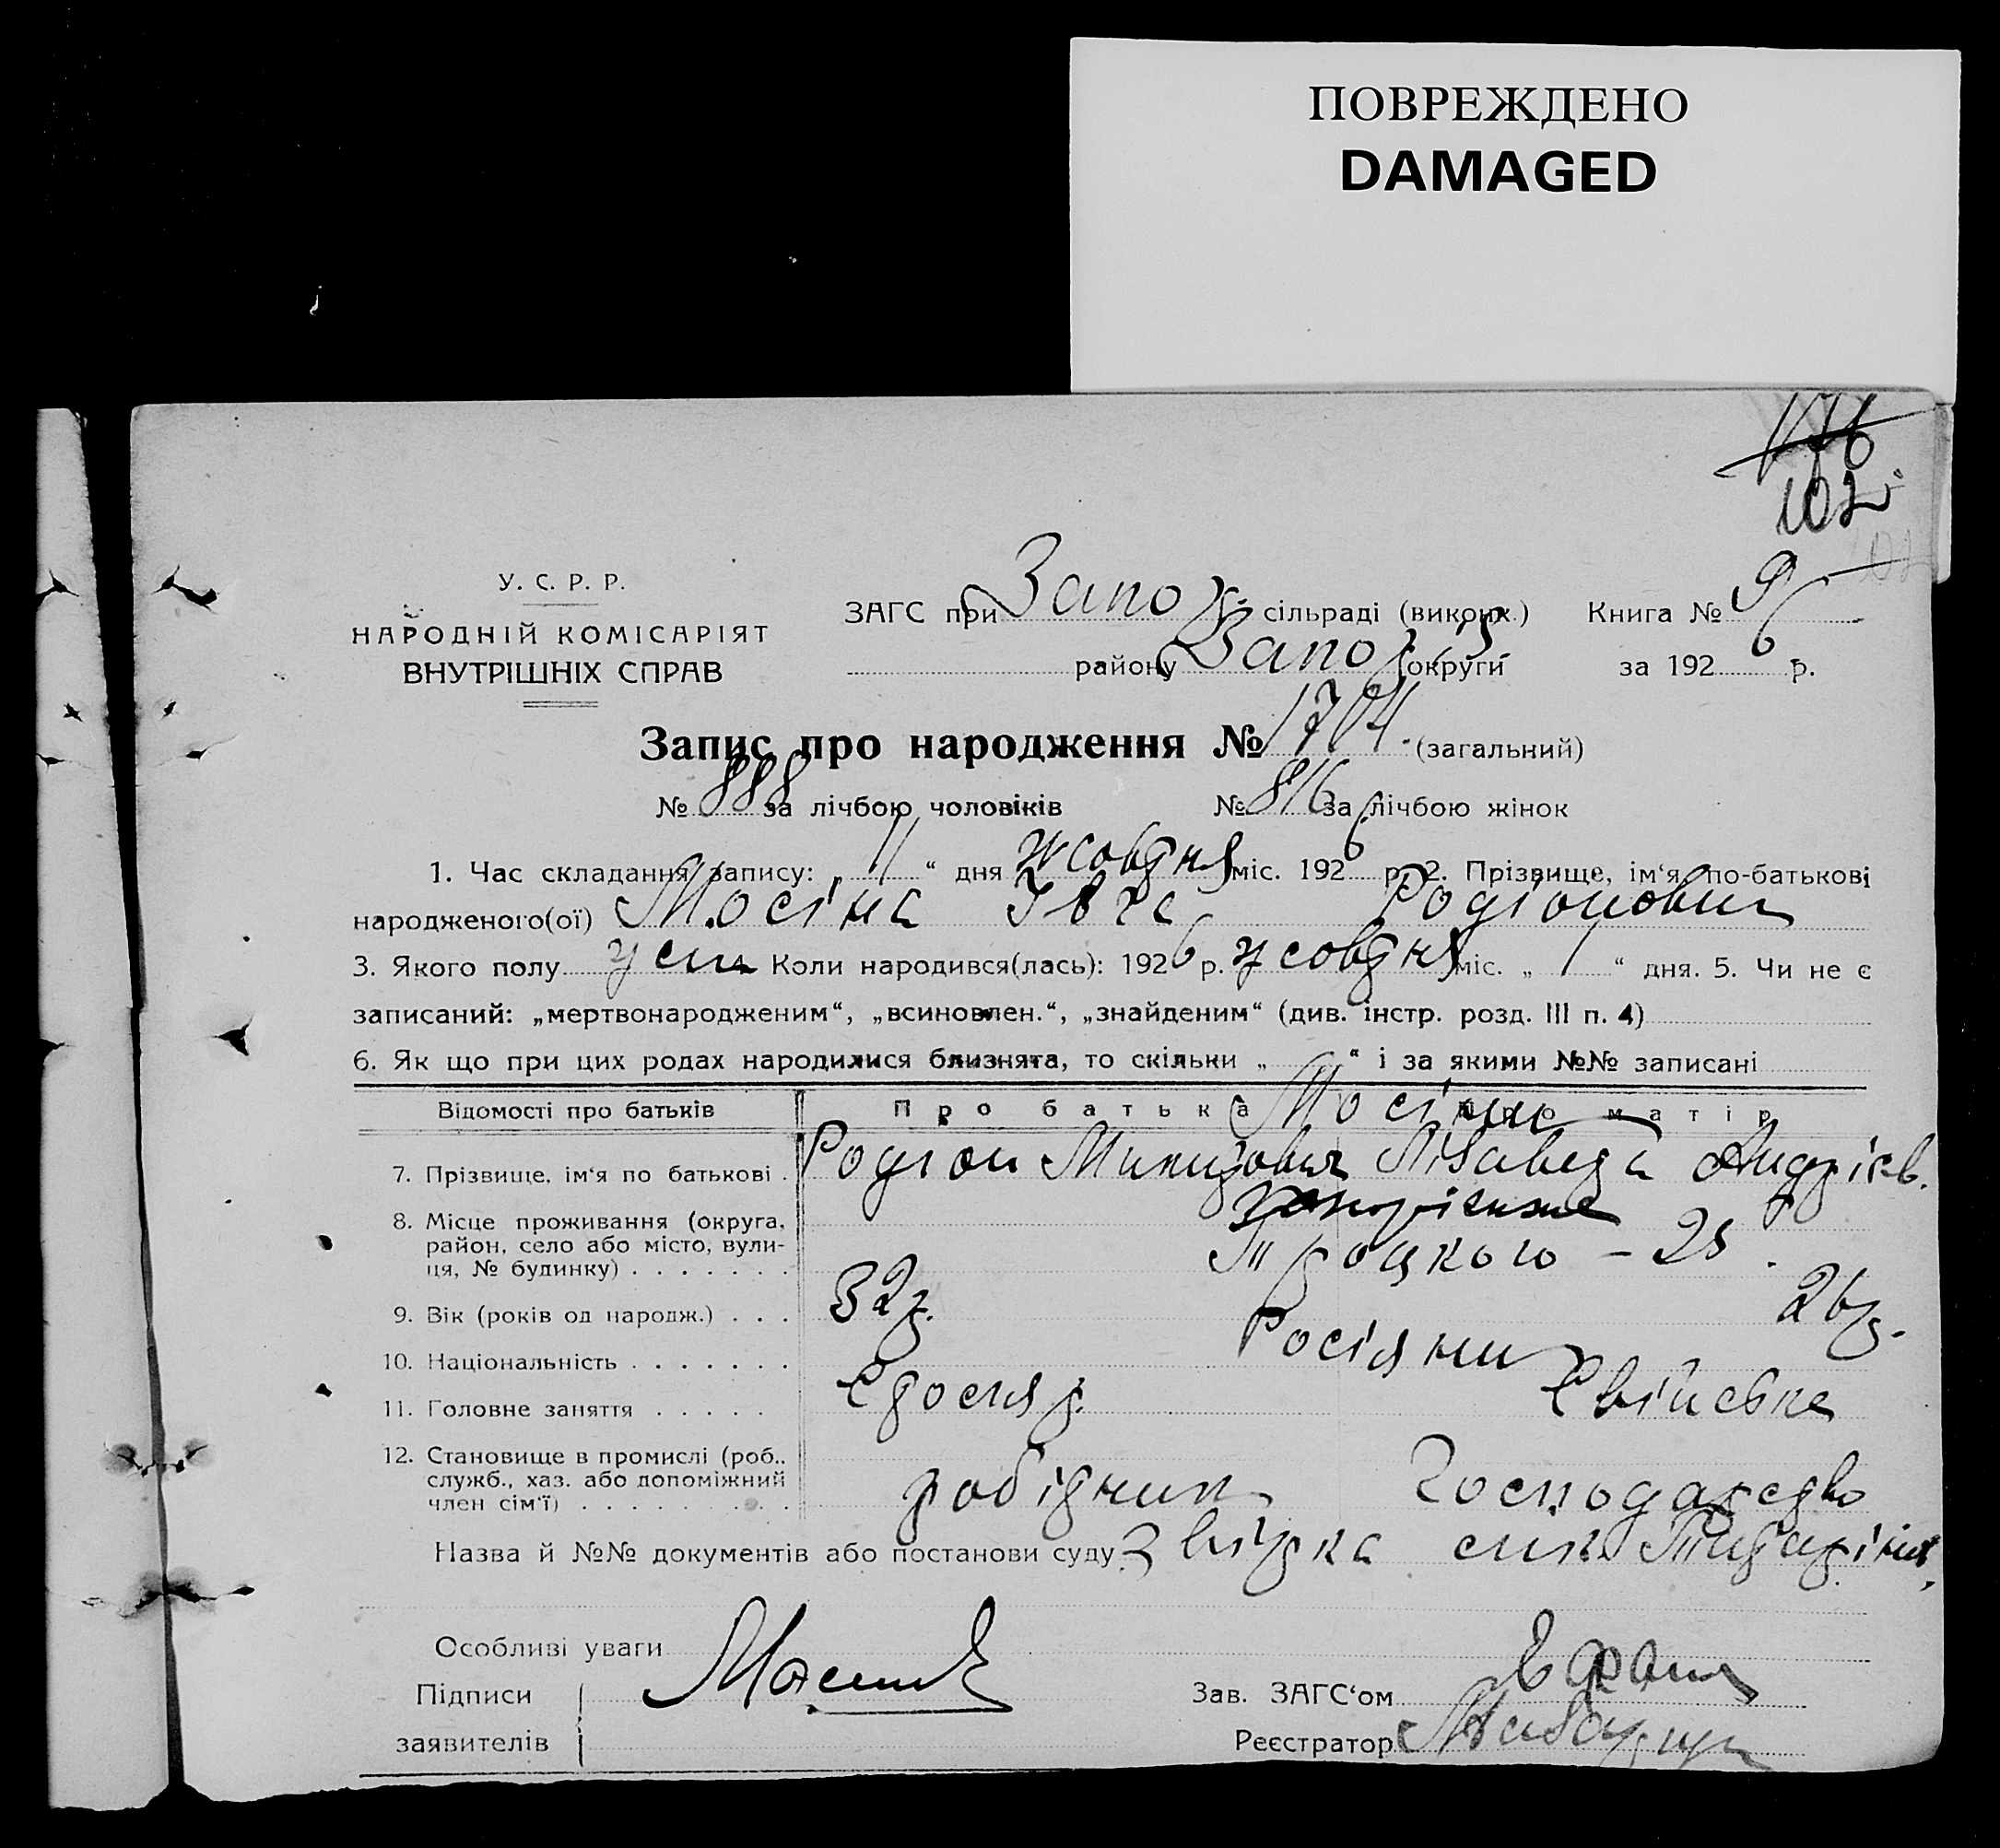 ПОВРЕЖДЕНО
DAMAGED
176
102
У. С. Р. Р.
НАРОДНІЙ КОМІСАРІЯТ
ВНУТРІШНІХ СПРАВ
ЗАГС при Запоріз. сільраді (виконк.) Книга № 9
району Запоріз. округи за 1926 р.
Запис про народження № 1704. (загальний)
№ 888 за лічбою чоловіків № 816 за лічбою жінок
1. Час складання запису: „ 11 “ дня жовтня міс. 1926 р. 2. Прізвище, ім‘я, по-батькові
народженого(ої) Мосіна Родіоновна
3. Якого полу жін. Коли народився(лась): 1926 р. жовтня міс. „ 1 “ дня. 5. Чи не є
записаний: „мертвонародженим“, „всиновлен.“, „знайденим“ (див. інстр. розд. III п. 4)
6. Як що при цих родах народилися близнята, то скільки „ “ і за якими №№ записані
Відомості про батьків Про батька Про матір
Мосіни
7. Прізвище, ім‘я по батькові . Родіон Микитович Лізавета Андрієв.
8. Місце проживання (округа,
район, село або місто, вули-
ця, № будинку) . . . . . . . Троцкого – 25.
9. Вік (років од народж.) . . . 32р. 26р.
10. Національність . . . . . . . Росіяни
11. Головне заняття . . . . . Свійське
12. Становище в промислі (роб.,
служб., хаз. або допоміжний
член сім‘ї) . . . . . . . . . робітник Господарство
Назва й №№ документів або постанови суду
Особливі уваги
Підписи
заявителів
Зав. ЗАГС‘ом
Реєстратор